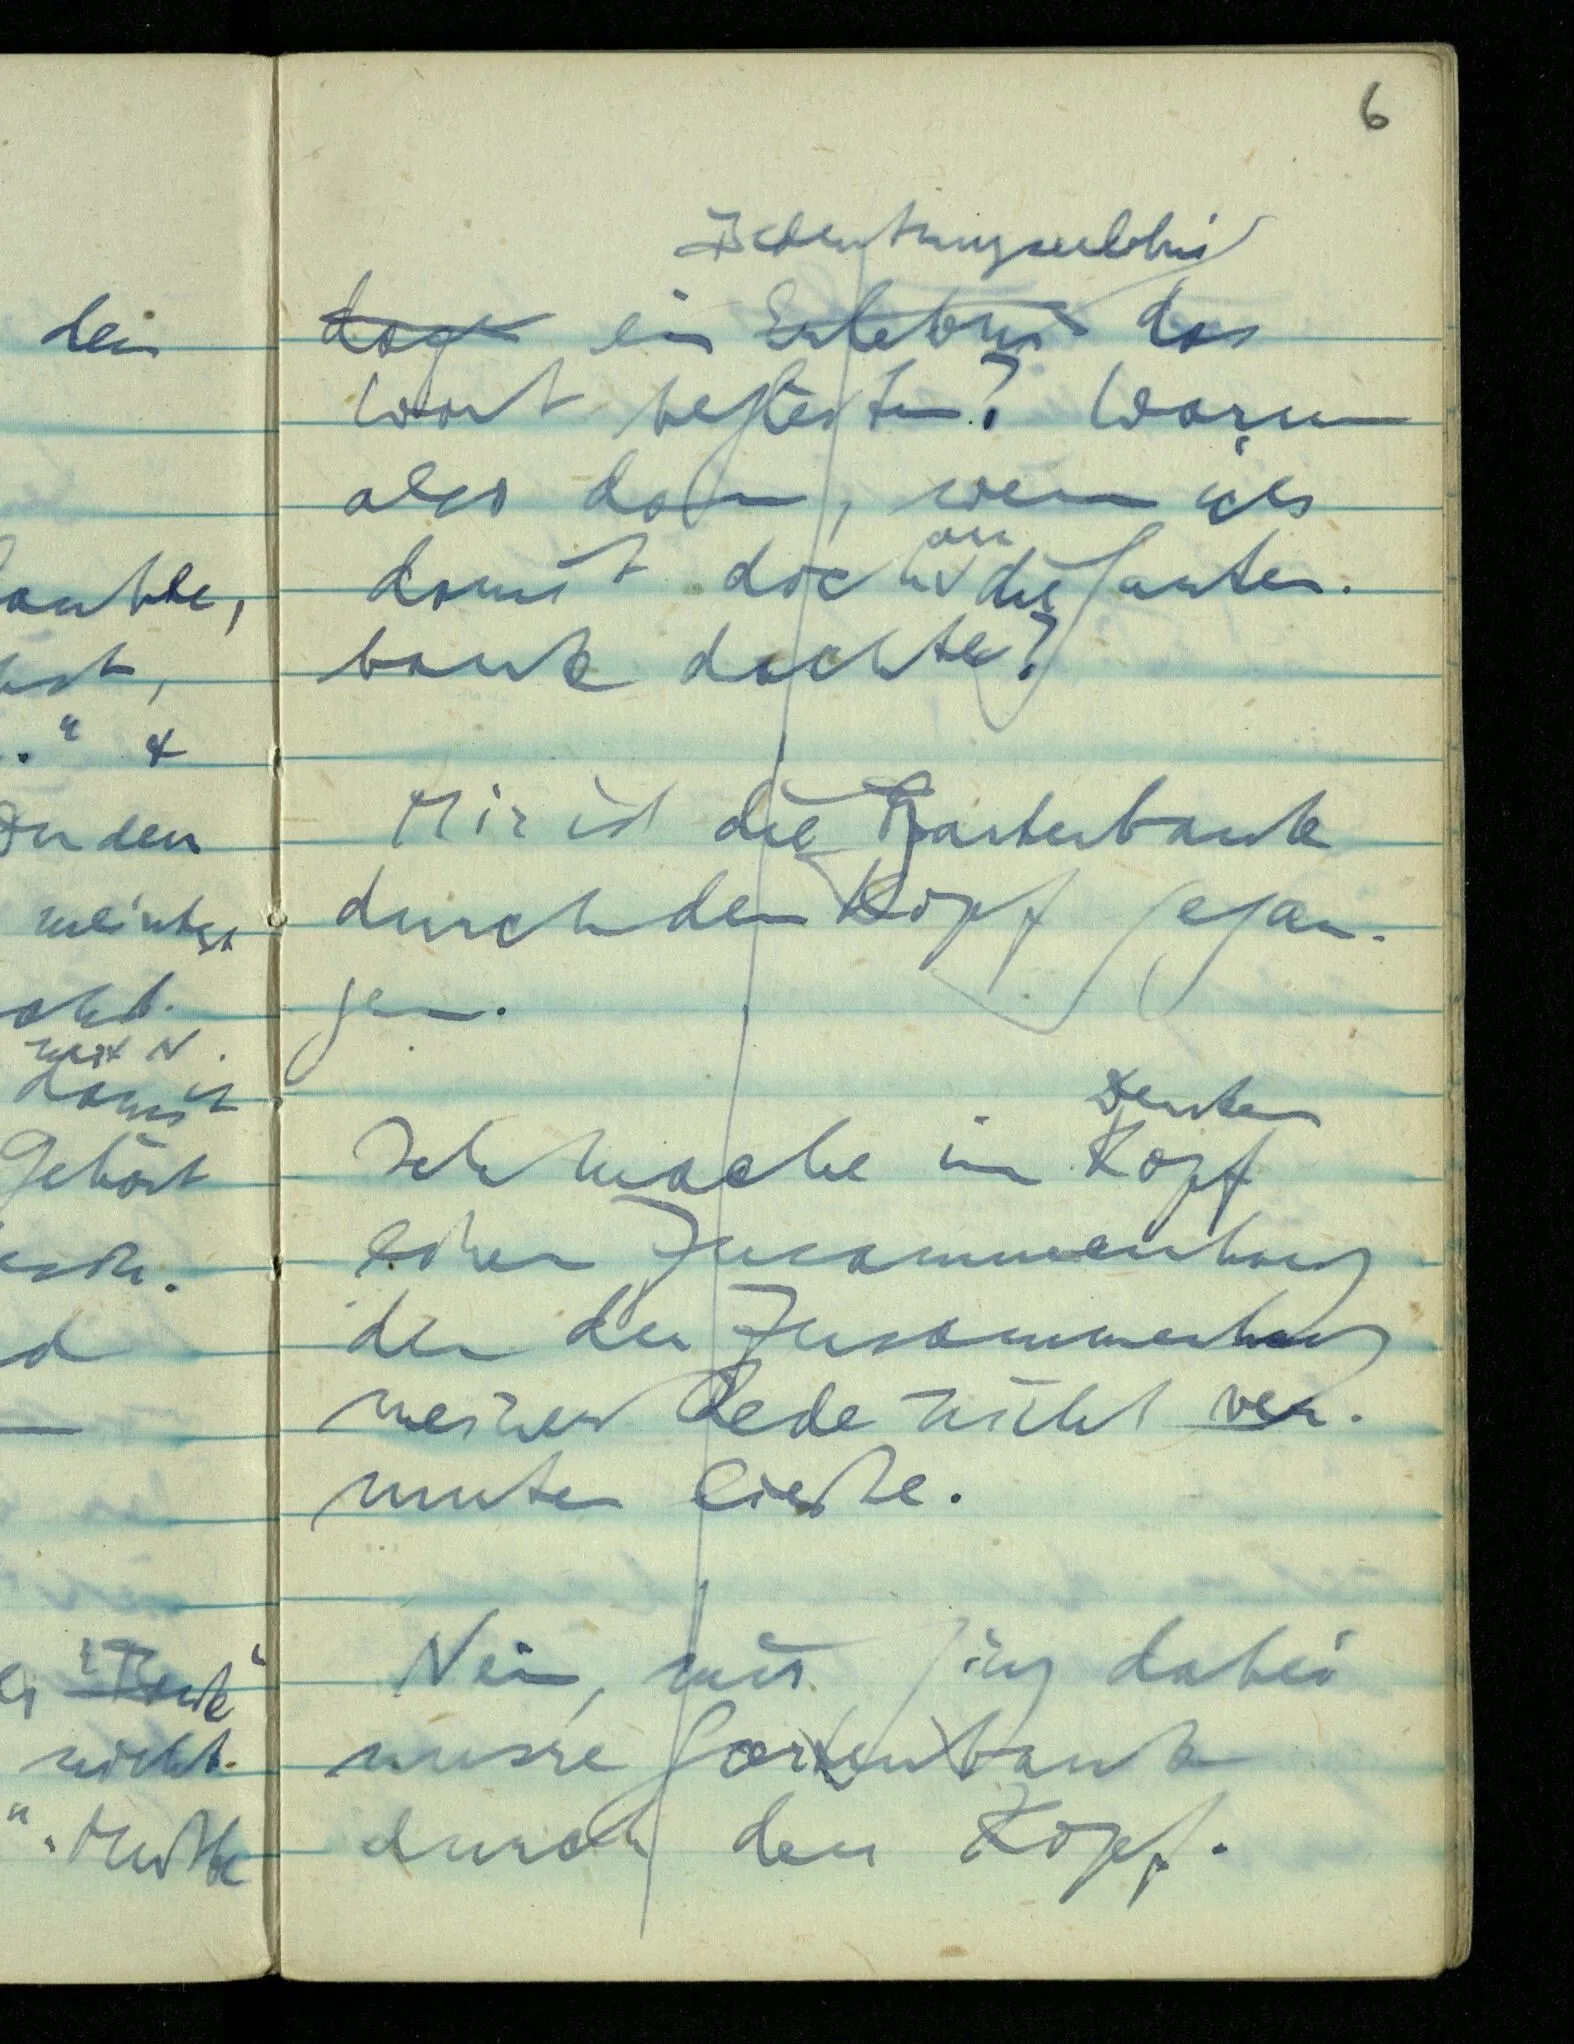 6
Bedeutungserlebnis
ein Erlebnis das
Wort begleiten? Warum
also dann, wenn ich
an
damit doch die Garten-
bank dachte?
Mir ist die Gartenbank
durch den Kopf gegan-
gen.
Denken
Ich mache im Kopf
einen Zusammenhang
den der Zusammenhang
meiner Rede nicht ver-
muten ließe.
Nein, mir ging dabei
unsre Gartenbank
durch den Kopf.
dein
." &
mit N.
damit
Gehört
"Bank"
nicht.